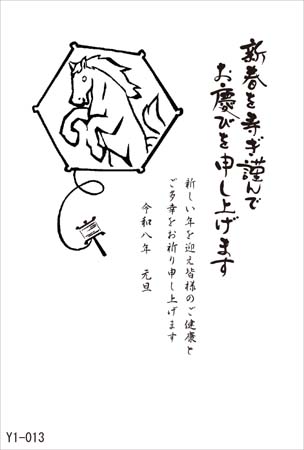 新春を寿ぎ謹んで
お慶びを申し上げます
新しい年を迎え皆様のご健康と
ご多幸をお祈り申し上げます
令和八年 元旦
Y1-013